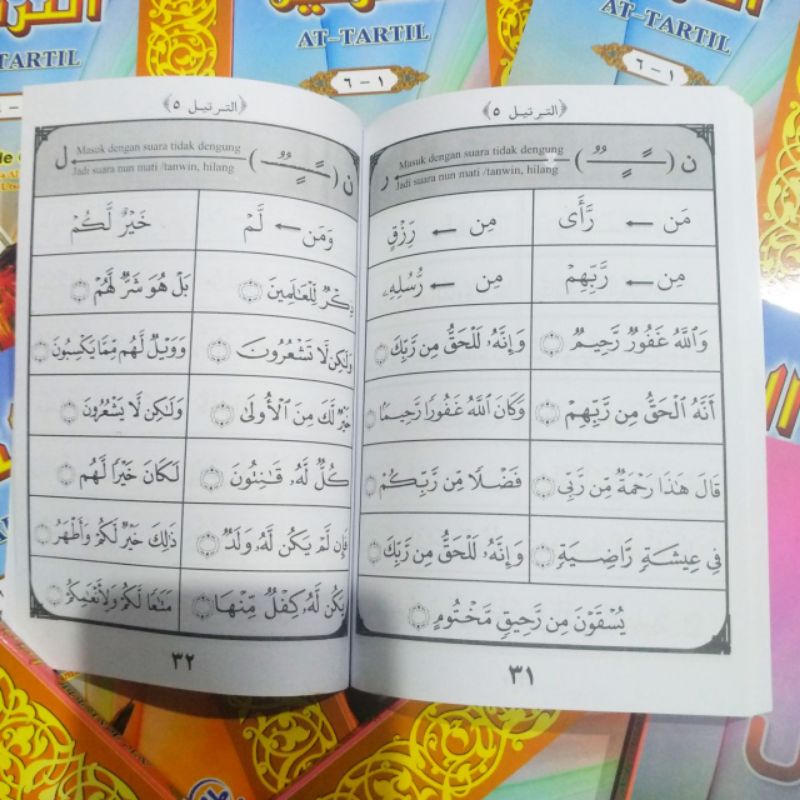 AT-TARTIL
٦ - ١
AT-TARTIL
٦ - ١
﴿ الترتيل ٥ ﴾
ن ( ـًـٍـٌ ) Masuk dengan suara tidak dengung ر
Jadi suara nun mati /tanwin, hilang
مَن ← رَّأَى
مِن ← رِّزْقٍ
مِن ← رَّبِّهِمْ
مِن ← رُّسُلِهِۦ
وَٱللَّهُ غَفُورٌ رَّحِيمٌ
وَإِنَّهُۥ لَلْحَقُّ مِن رَّبِّكَ
أَنَّهُ ٱلْحَقُّ مِن رَّبِّهِمْ
وَكَانَ ٱللَّهُ غَفُورًا رَّحِيمًا
قَالَ هَٰذَا رَحْمَةٌ مِّن رَّبِّى
فَضْلًا مِّن رَّبِّكُمْ
فِى عِيشَةٍ رَّاضِيَةٍ
وَإِنَّهُۥ لَلْحَقُّ مِن رَّبِّكَ
يُسْقَوْنَ مِن رَّحِيقٍ مَّخْتُومٍ
٣١
﴿ الترتيل ٥ ﴾
ن ( ـًـٍـٌ ) Masuk dengan suara tidak dengung ل
Jadi suara nun mati /tanwin, hilang
وَمَن ← لَّمْ
خَيْرٌ لَّكُمْ
ذِكْرٌ لِّلْعَالَمِينَ
بَلْ هُوَ شَرٌّ لَّهُمْ
وَلَٰكِن لَّا تَشْعُرُونَ
وَوَيْلٌ لَّهُم مِّمَّا يَكْسِبُونَ
خَيْرٌ لَّكَ مِنَ ٱلْأُولَىٰ
وَلَٰكِن لَّا يَشْعُرُونَ
كُلٌّ لَّهُۥ قَٰنِتُونَ
لَكَانَ خَيْرًا لَّهُم
فَإِن لَّمْ يَكُن لَّهُۥ وَلَدٌ
ذَٰلِكَ خَيْرٌ لَّكُمْ وَأَطْهَرُ
يَكُن لَّهُۥ كِفْلٌ مِّنْهَا
مَتَٰعًا لَّكُمْ وَلِأَنْعَٰمِكُمْ
٣٢